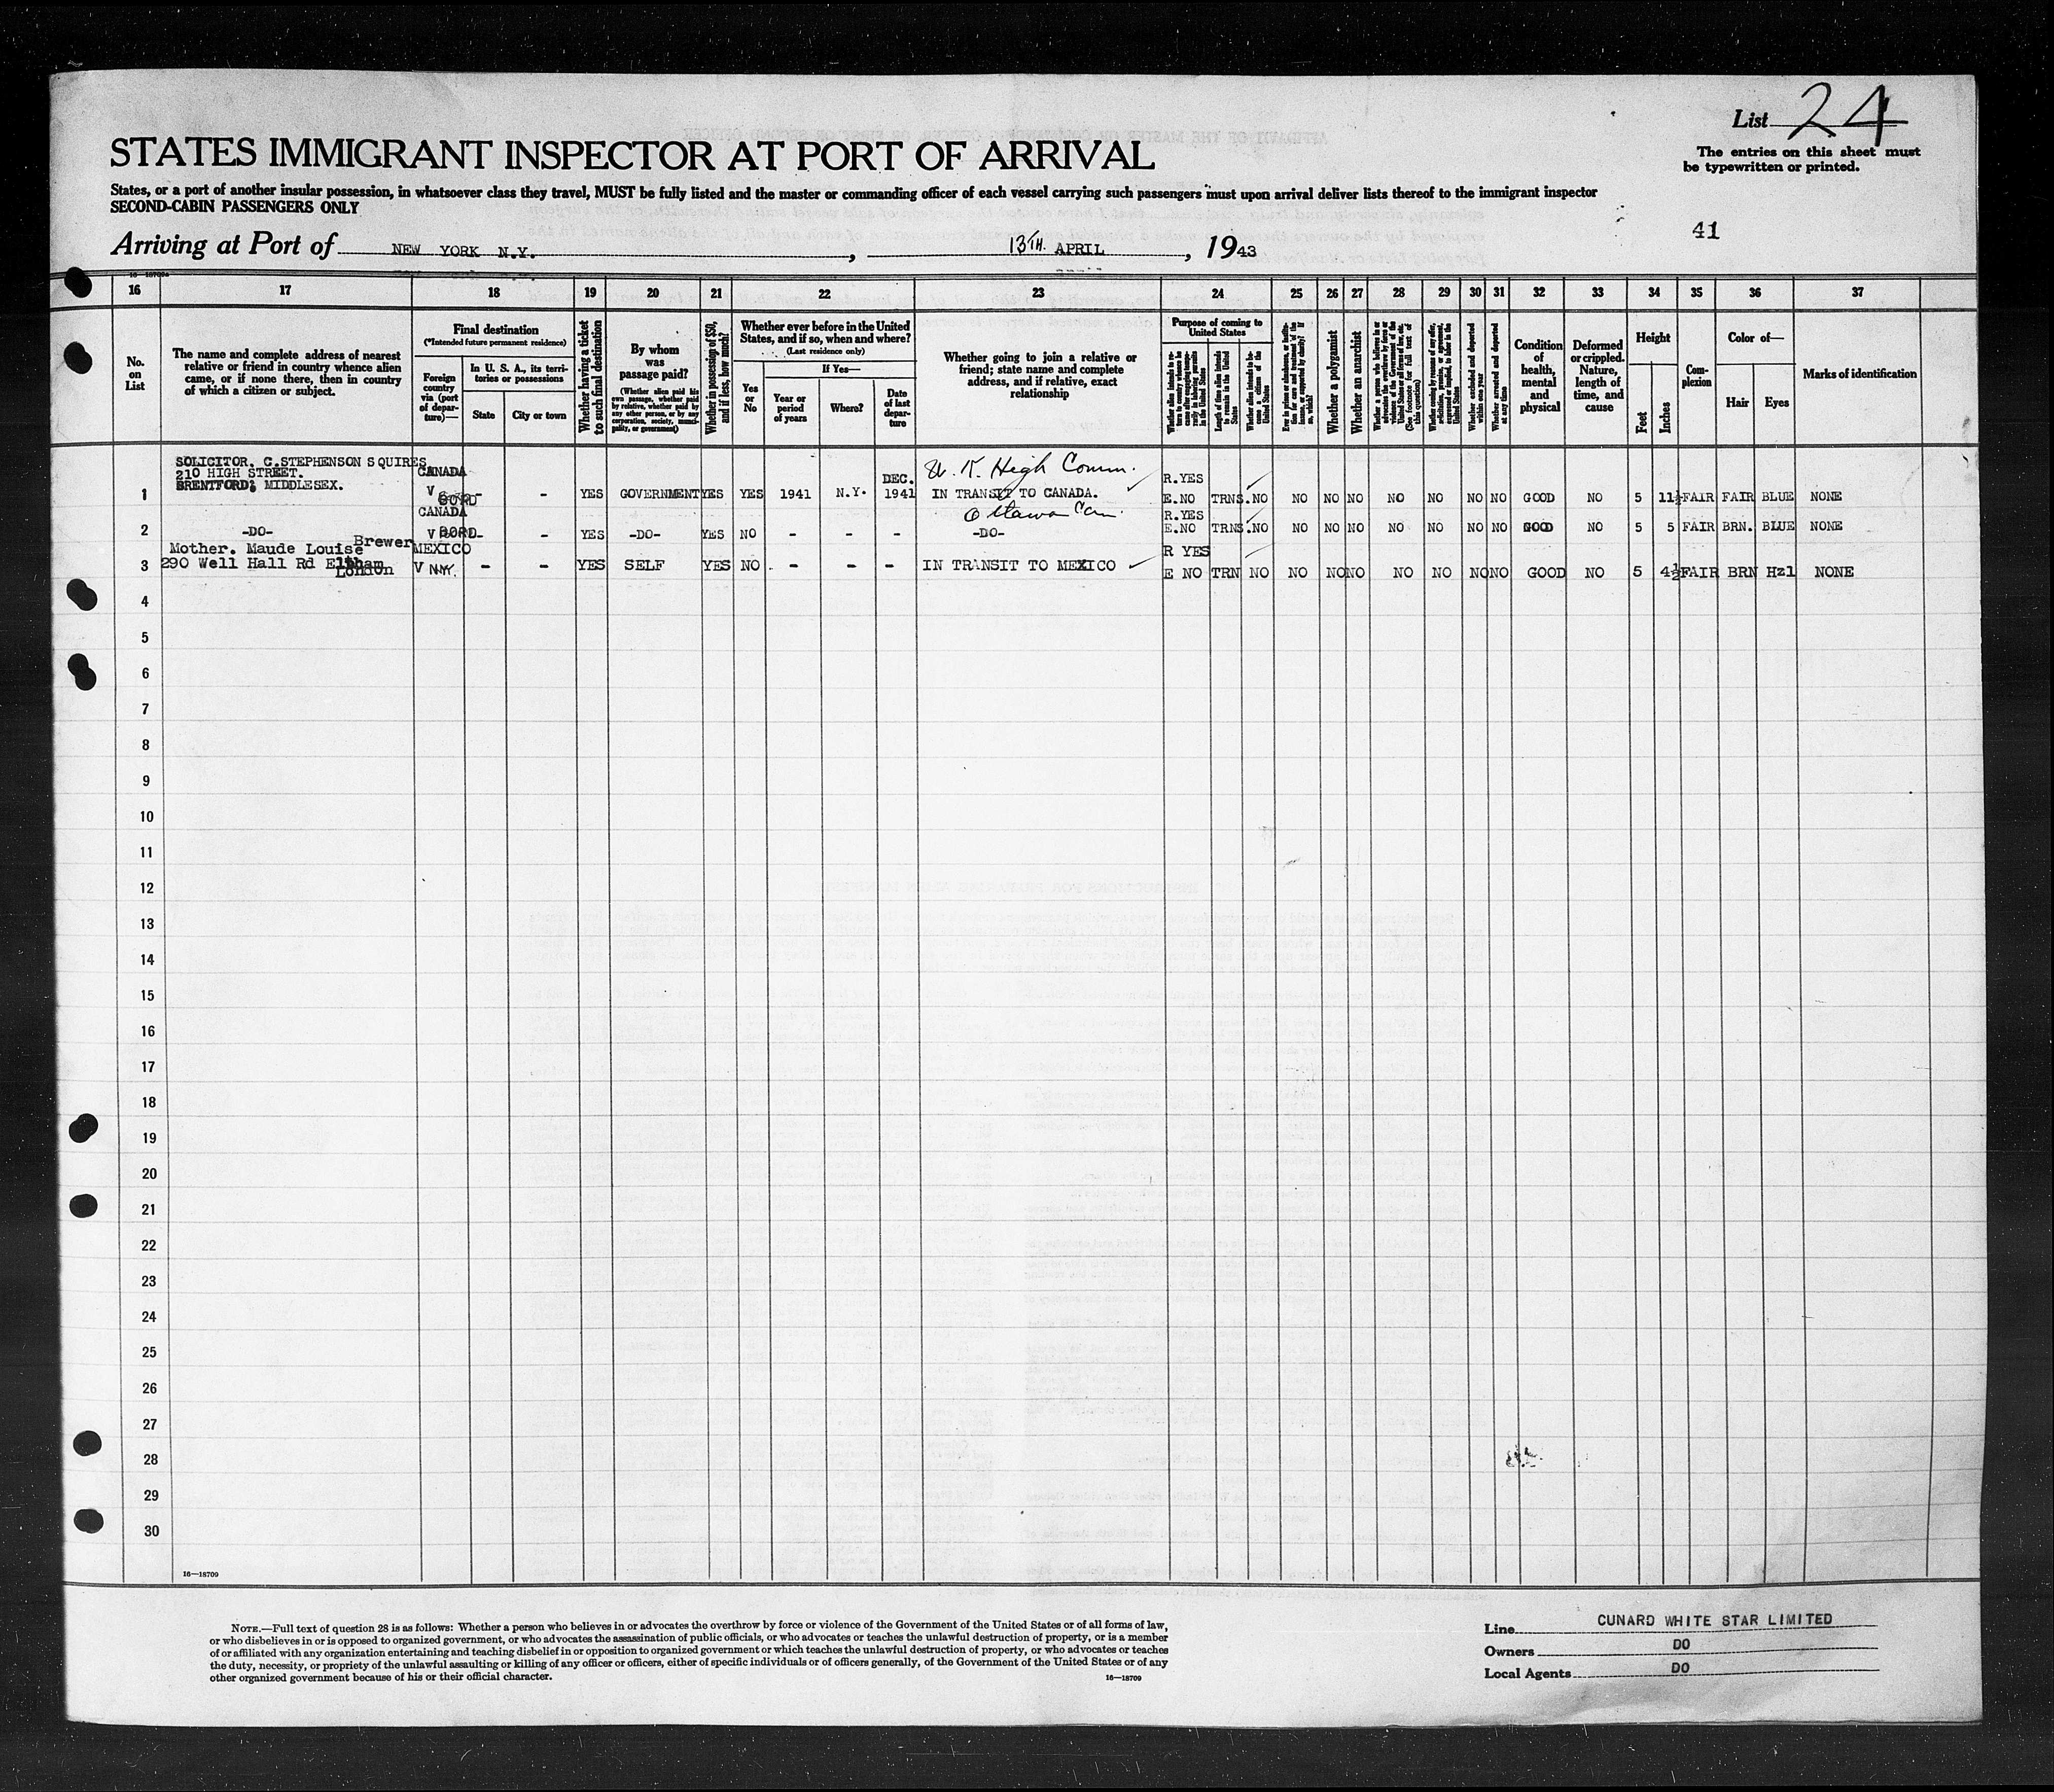 List 24
STATES IMMIGRANT INSPECTOR AT PORT OF ARRIVAL
The entries on this sheet must
be typewritten or printed.
States, or a port of another insular possession, in whatsoever class they travel, MUST be fully listed and the master or commanding officer of each vessel carrying such passengers must upon arrival deliver lists thereof to the immigrant inspector
SECOND-CABIN PASSENGERS ONLY
41
Arriving at Port of NEW YORK N.Y., 13TH. APRIL, 1943
16 17 18 19 20 21 22 23 24 25 26 27 28 29 30 31 32 33 34 35 36 37
No. on List
The name and complete address of nearest relative or friend in country whence alien came, or if none there, then in country of which a citizen or subject.
Final destination
(*Intended future permanent residence)
Foreign country via (port of departure)—
In U. S. A., its territories or possessions
State
City or town
Whether having a ticket to such final destination
By whom was passage paid?
(Whether alien paid his own passage, whether paid by relative, whether paid by any other person, or by any corporation, society, municipality, or government)
Whether in possession of $50, and if less, how much?
Whether ever before in the United States, and if so, when and where?
(Last residence only)
Yes or No
If Yes—
Year or period of years
Where?
Date of last departure
Whether going to join a relative or friend; state name and complete address, and if relative, exact relationship
Purpose of coming to United States
Length of time alien intends to remain in the United States
Whether alien intends to become a citizen of the United States
Whether a polygamist
Whether an anarchist
(See footnote for full text of this question)
Whether arrested and deported at any time
Condition of health, mental and physical
Deformed or crippled. Nature, length of time, and cause
Height
Feet
Inches
Complexion
Color of—
Hair
Eyes
Marks of identification
SOLICITOR. C.STEPHENSON SQUIRES
210 HIGH STREET.
BRENTFORD, MIDDLESEX.
1 CANADA V - - YES GOVERNMENT YES YES 1941 N.Y. DEC. 1941 U. K. High Comm. IN TRANSIT TO CANADA. Ottawa Can. R.YES E.NO TRNS. NO NO NO NO NO NO NO NO GOOD NO 5 11½ FAIR FAIR BLUE NONE
2 -DO- CANADA V BORD- - YES -DO- YES NO - - - -DO- R.YES E.NO TRNS. NO NO NO NO NO NO NO NO GOOD NO 5 5 FAIR BRN. BLUE NONE
Mother. Maude Louise Brewer
3 290 Well Hall Rd Eltham London MEXICO V N.Y. - - YES SELF YES NO - - - IN TRANSIT TO MEXICO R YES E NO TRN NO NO NO NO NO NO NO NO GOOD NO 5 4½ FAIR BRN Hzl NONE
4
5
6
7
8
9
10
11
12
13
14
15
16
17
18
19
20
21
22
23
24
25
26
27
28
29
30
16—18709
NOTE.—Full text of question 28 is as follows: Whether a person who believes in or advocates the overthrow by force or violence of the Government of the United States or of all forms of law,
or who disbelieves in or is opposed to organized government, or who advocates the assassination of public officials, or who advocates or teaches the unlawful destruction of property, or is a member
of or affiliated with any organization entertaining and teaching disbelief in or opposition to organized government or which teaches the unlawful destruction of property, or who advocates or teaches
the duty, necessity, or propriety of the unlawful assaulting or killing of any officer or officers, either of specific individuals or of officers generally, of the Government of the United States or of any
other organized government because of his or their official character.
16—18709
Line CUNARD WHITE STAR LIMITED
Owners DO
Local Agents DO